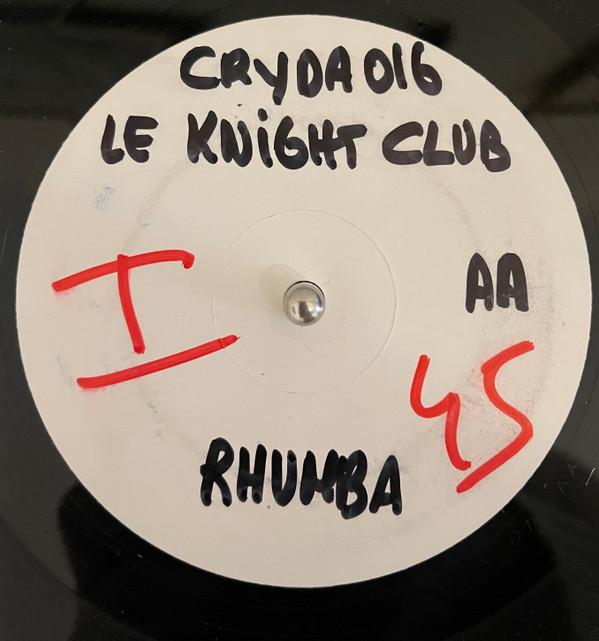 CRYDA016
LE KNiGHT CLUB
I
AA
45
RHUMBA